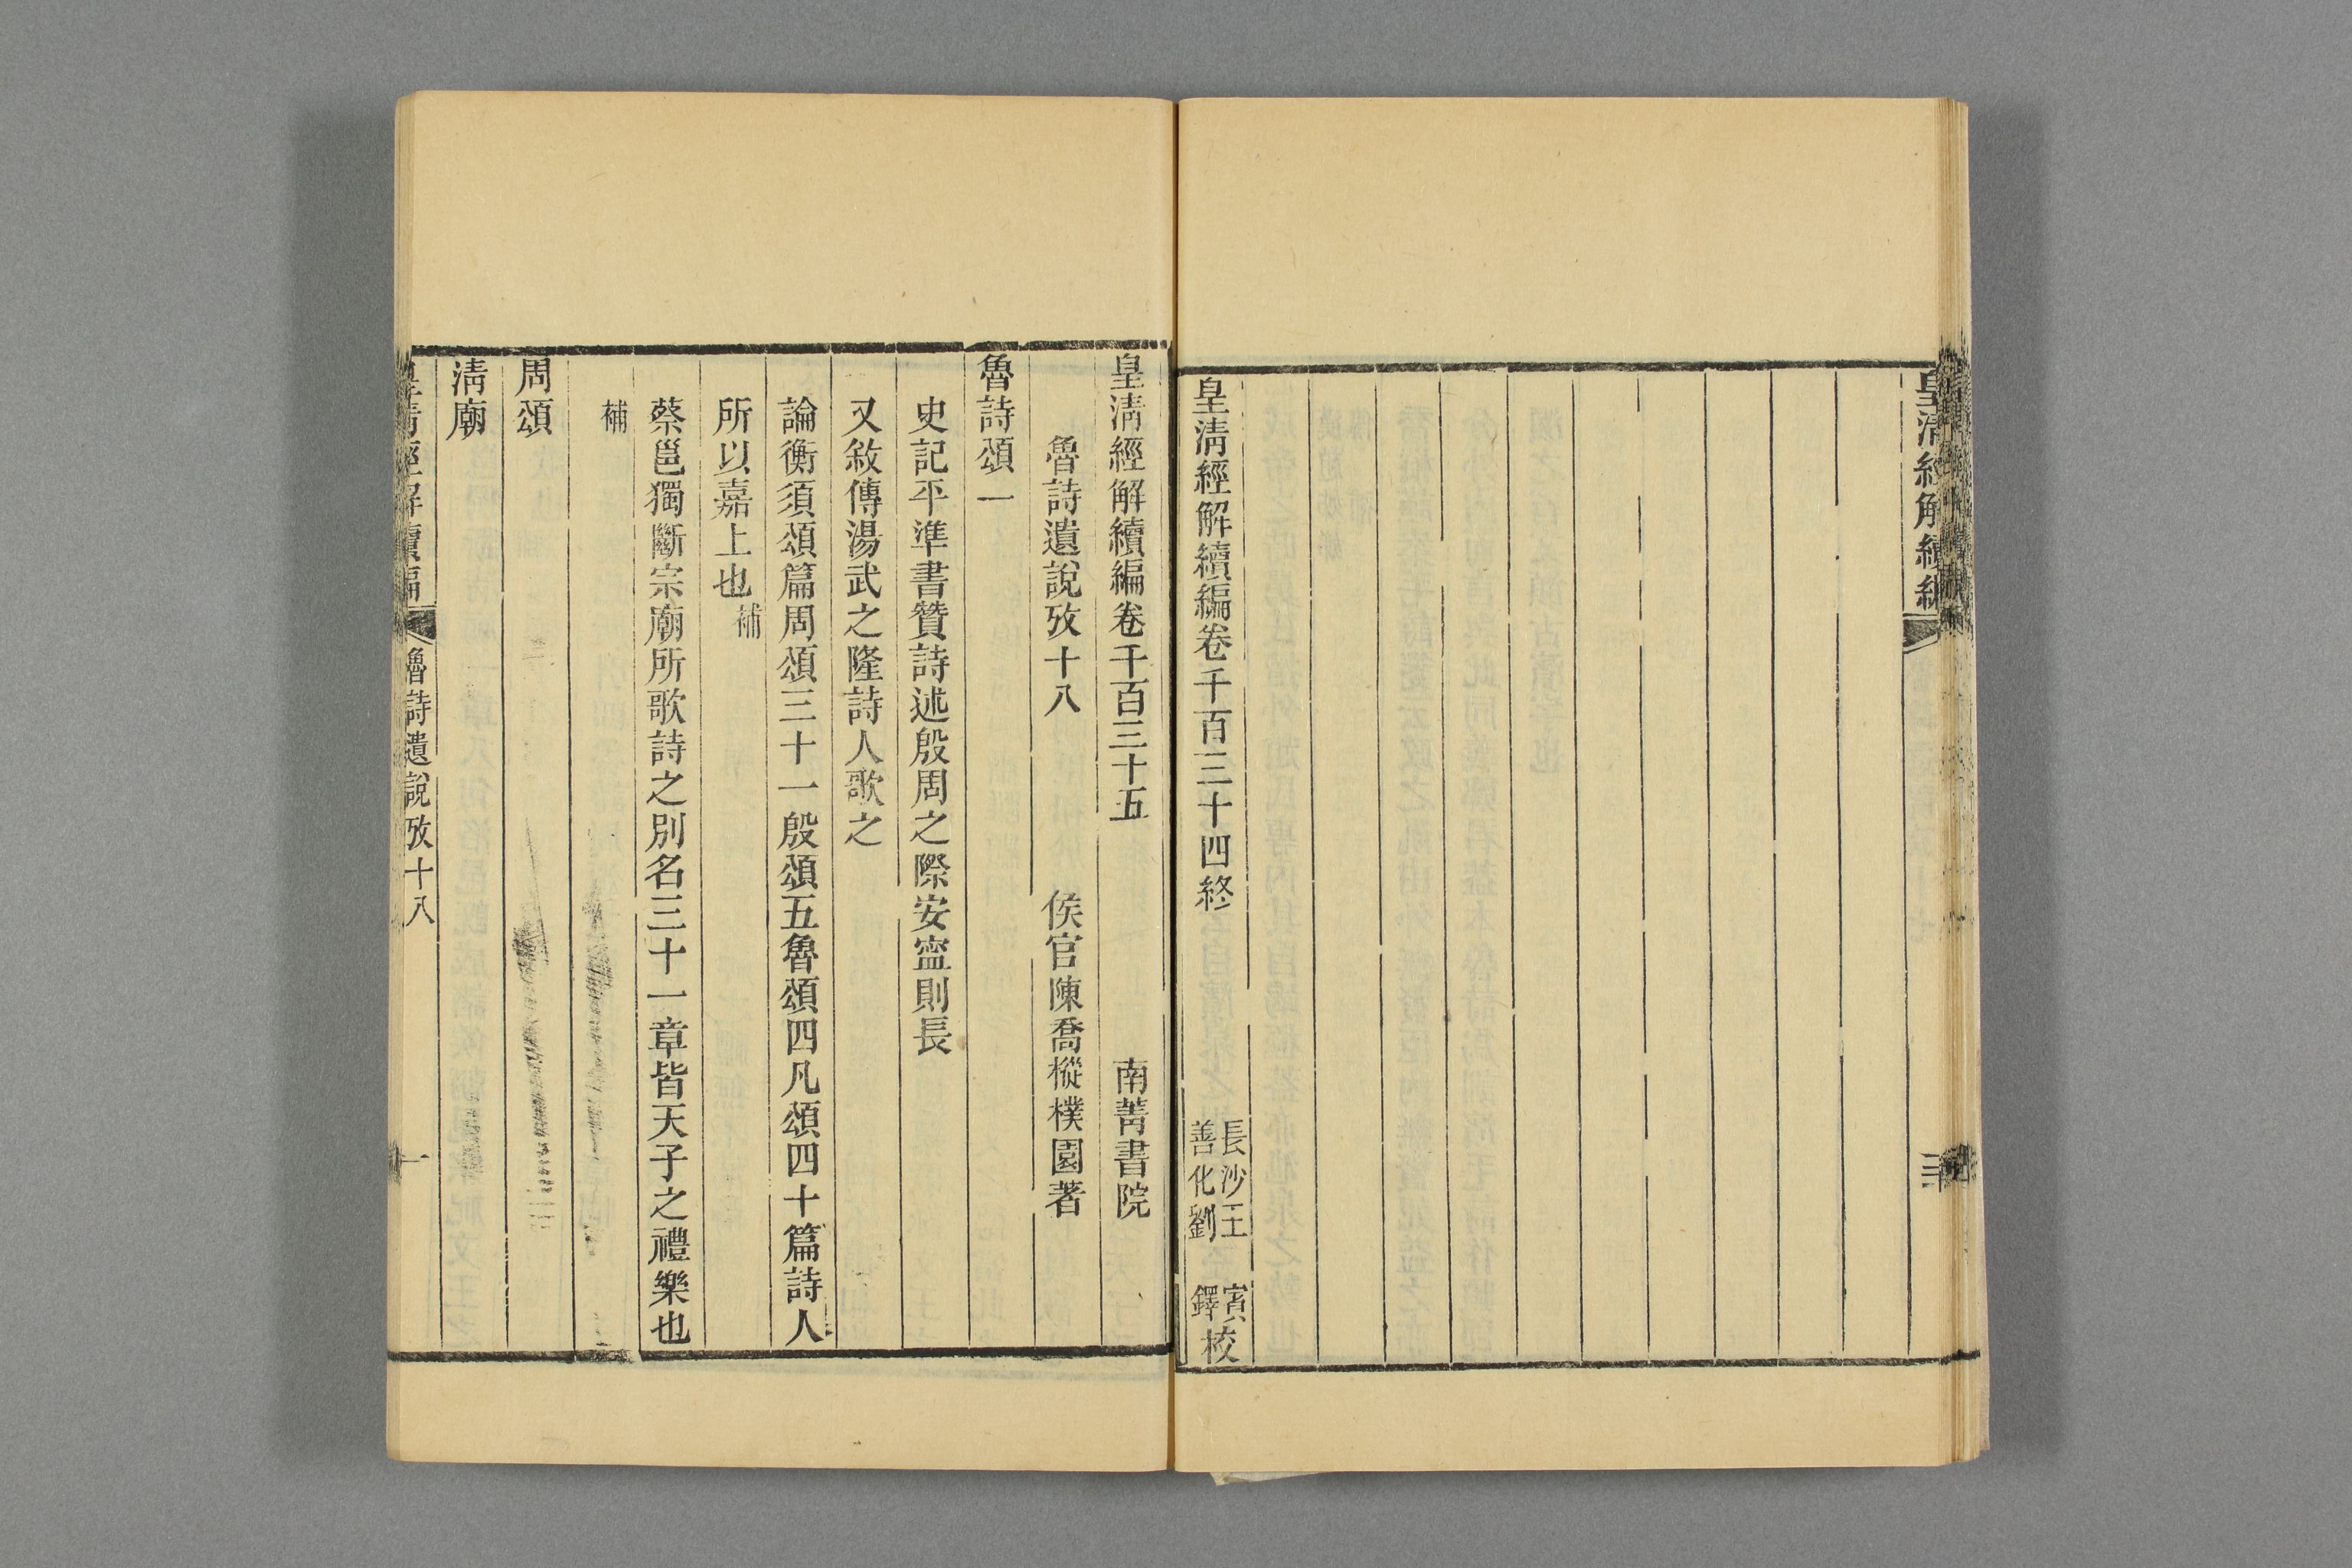 皇清經解續編
皇清經解續編卷千百三十四終
長沙王賓
善化劉鐸
校
皇清經解續編卷千百三十五
南菁書院
魯詩遺說攷十八
侯官陳喬樅樸園著
魯詩頌一
史記平準書贊詩述殷周之際安寍則長
又敘傳湯武之隆詩人歌之
論衡須頌篇周頌三十一殷頌五魯頌四凡頌四十篇詩人
所以嘉上也補
蔡邕獨斷宗廟所歌詩之別名三十一章皆天子之禮樂也
補
周頌
清廟
皇清經解續編
魯詩遺說攷十八
一